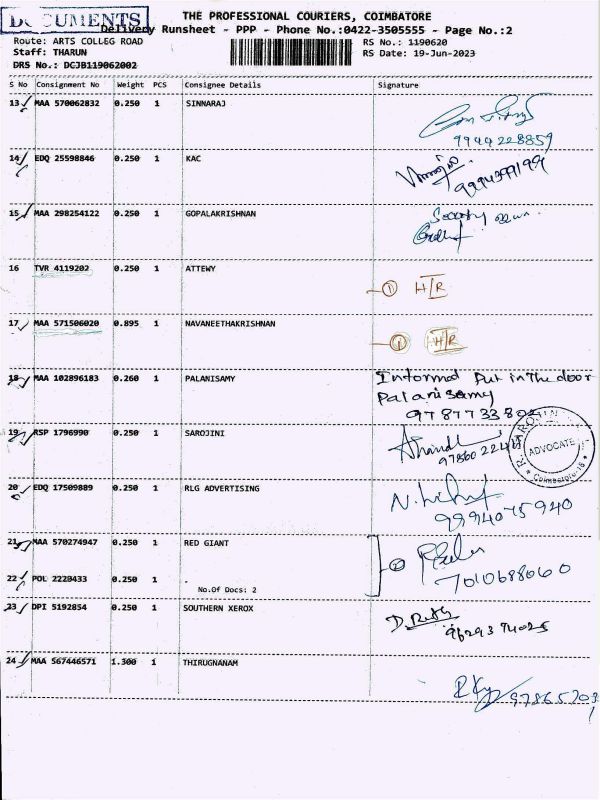 DOCUMENTS
THE PROFESSIONAL COURIERS, COIMBATORE
Delivery Runsheet - PPP - Phone No.:0422-3505555 - Page No.:2
Route: ARTS COLLEG ROAD
RS No.: 1190620
Staff: THARUN
RS Date: 19-Jun-2023
DRS No.: DCJB119062002
S No Consignment No Weight PCS Consignee Details Signature
13 MAA 570062832 0.250 1 SINNARAJ
9944228859
14 EDQ 25598846 0.250 1 KAC
15 MAA 298254122 0.250 1 GOPALAKRISHNAN
16 TVR 4119202 0.250 1 ATTEWY
1 H/R
17 MAA 571506020 0.895 1 NAVANEETHAKRISHNAN
1 H/R
18 MAA 102896183 0.260 1 PALANISAMY
Informed Put in The door
Palanisamy
19 RSP 1796990 0.250 1 SAROJINI
ADVOCATE
Coimbatore-18
20 EDQ 17509889 0.250 1 RLG ADVERTISING
9994075940
21 MAA 570274947 0.250 1 RED GIANT
22 POL 2220433 0.250 1 .
No.Of Docs: 2
2
7010688060
23 DPI 5192854 0.250 1 SOUTHERN XEROX
9629374025
24 MAA 567446571 1.300 1 THIRUGNANAM